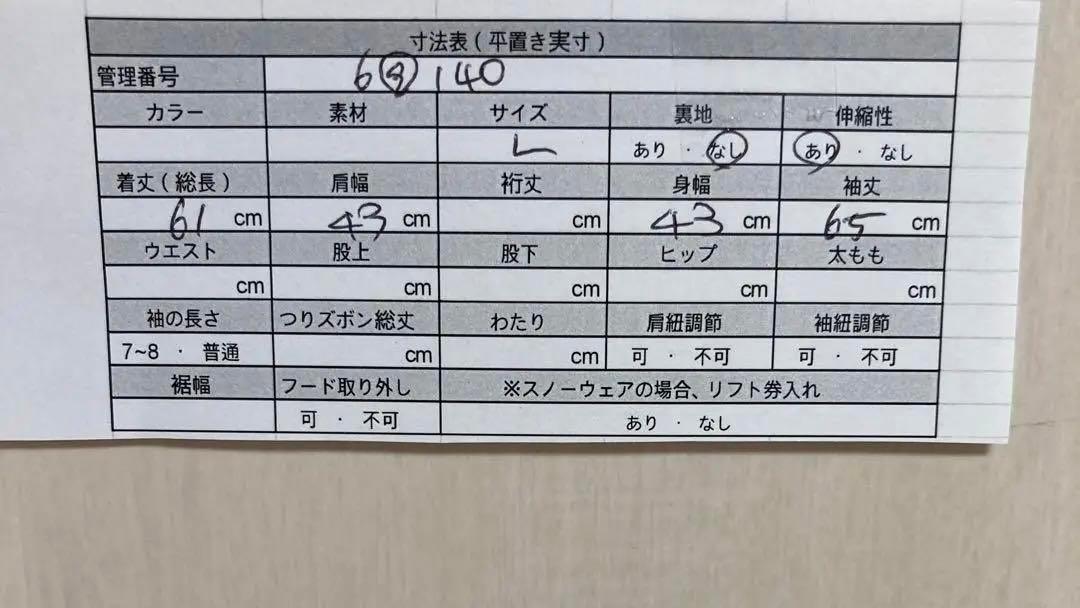 寸法表(平置き実寸)
管理番号 6 140
カラー 素材 サイズ 裏地 伸縮性
L あり・なし あり・なし
着丈(総長) 肩幅 裄丈 身幅 袖丈
61 cm 43 cm cm 43 cm 65 cm
ウエスト 股上 股下 ヒップ 太もも
cm cm cm cm cm
袖の長さ つりズボン総丈 わたり 肩紐調節 袖紐調節
7~8 ・ 普通 cm cm 可 ・ 不可 可 ・ 不可
裾幅 フード取り外し ※スノーウェアの場合、リフト券入れ
可 ・ 不可 あり ・ なし